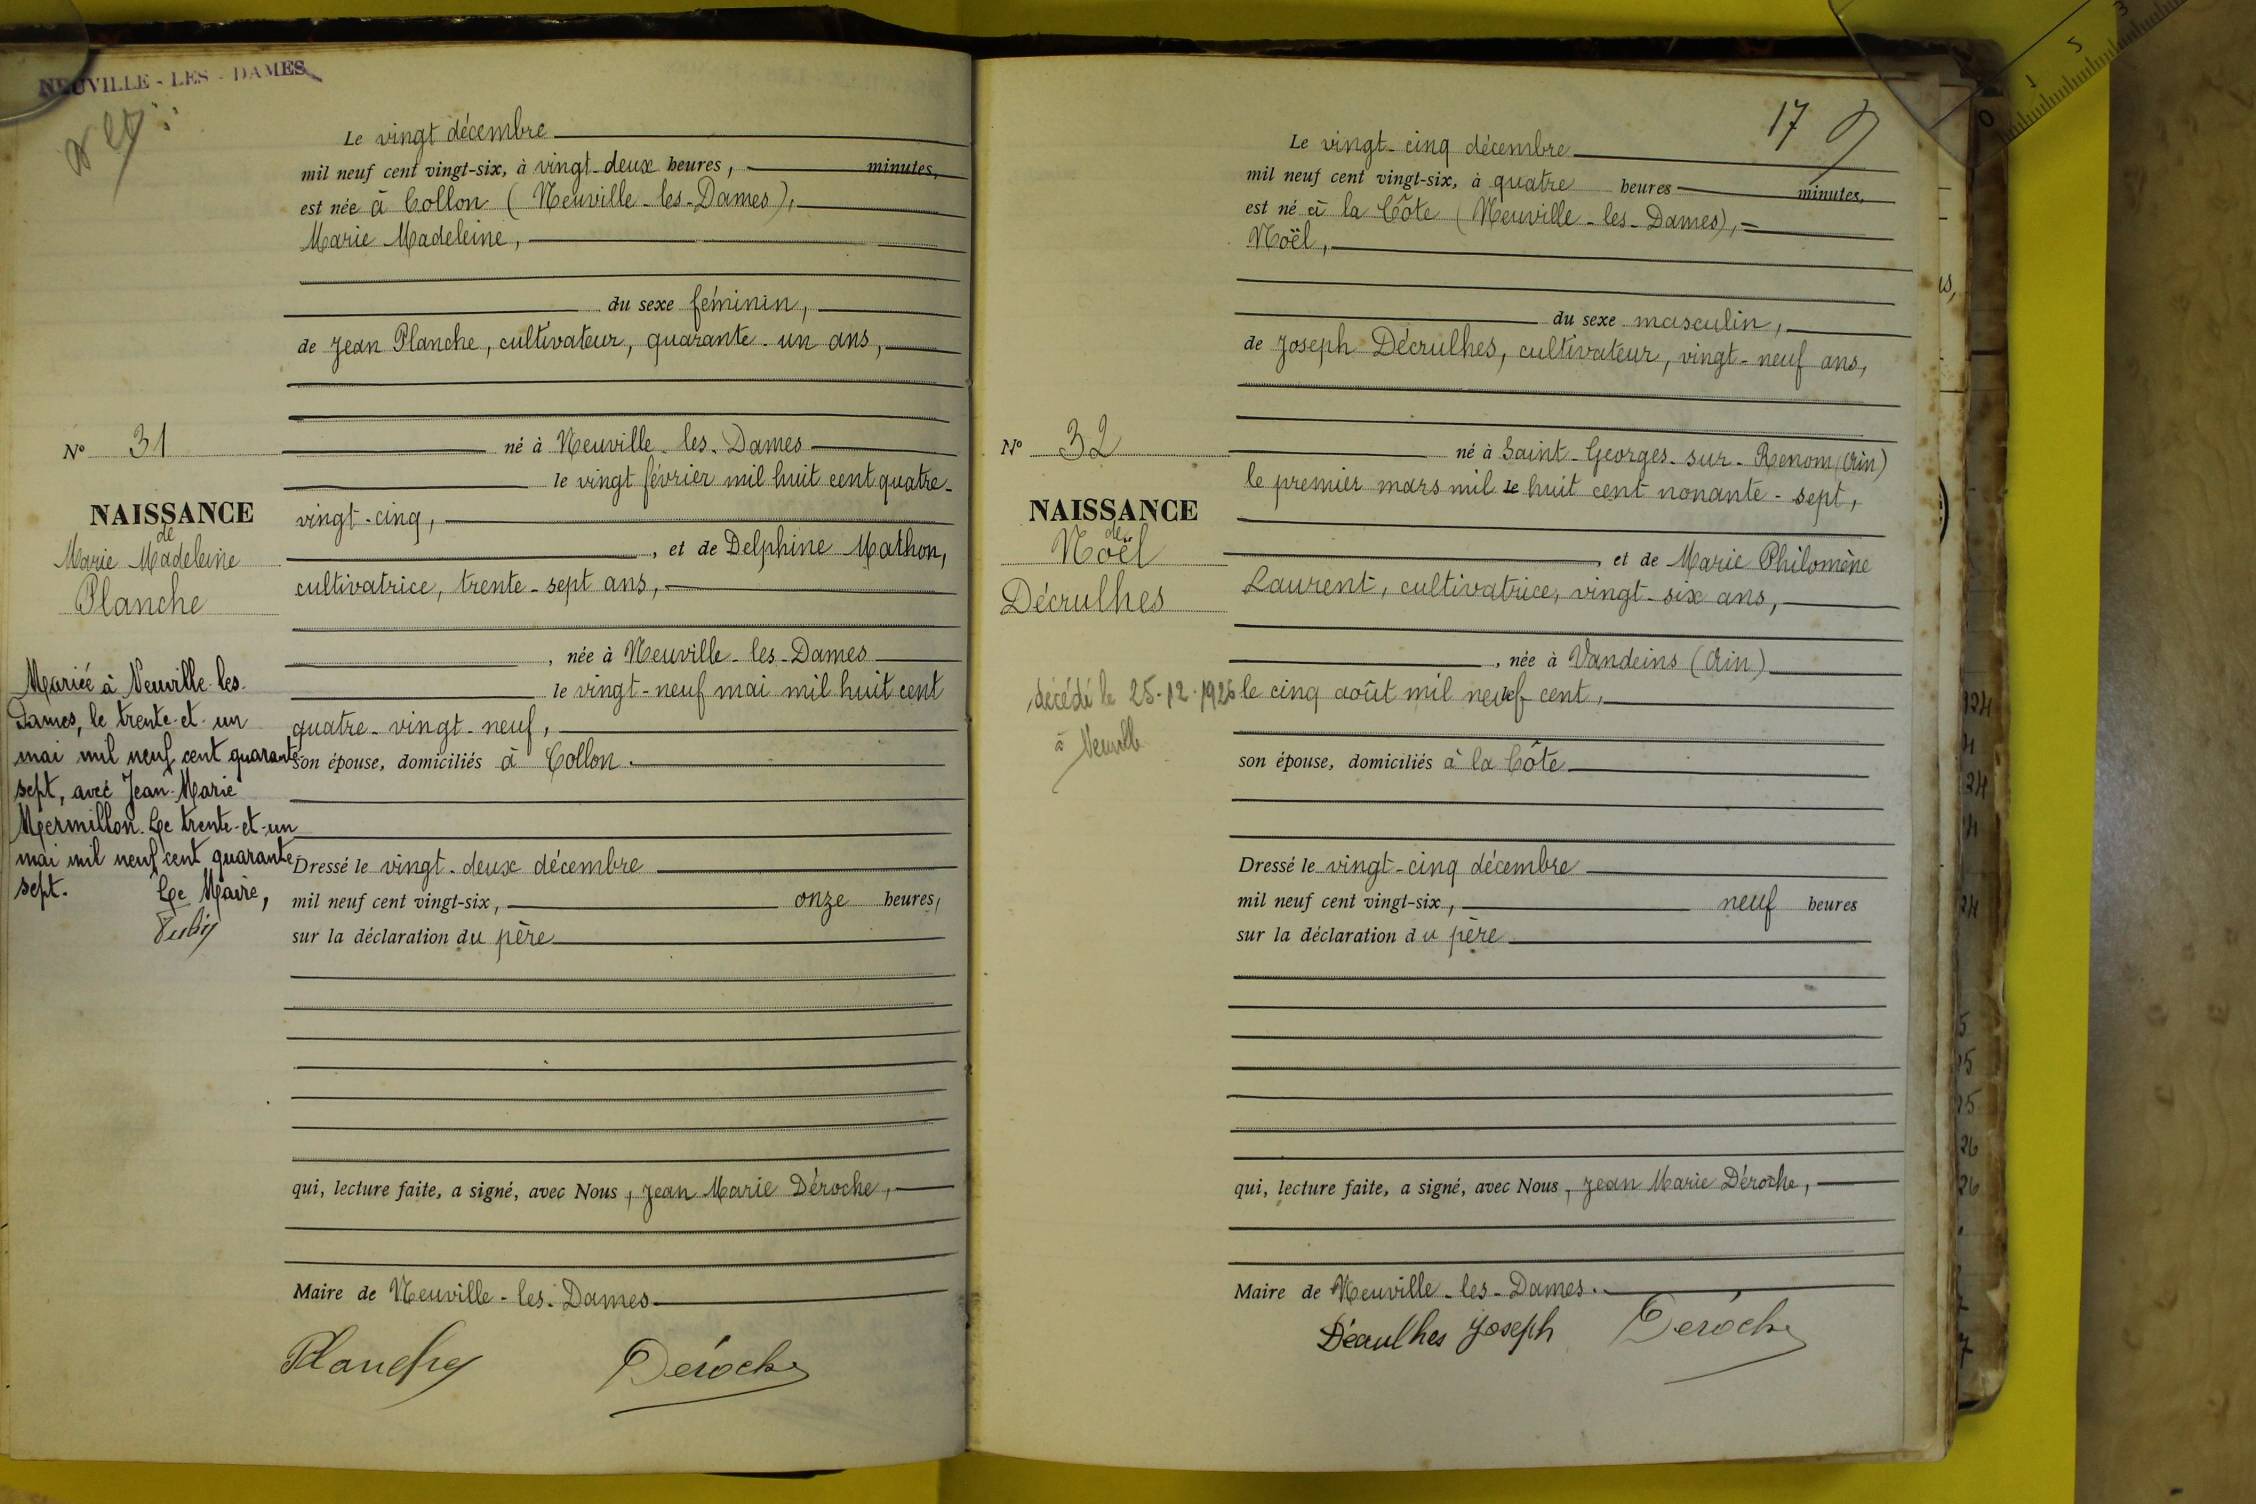 NEUVILLE-LES-DAMES
Le vingt décembre
mil neuf cent vingt-six, à vingt-deux heures, minutes,
est née à Collon (Neuville-les-Dames),
Marie Madeleine,
du sexe féminin,
de Jean Planche, cultivateur, quarante-un ans,
né à Neuville-les-Dames
le vingt février mil huit cent quatre-
vingt-cinq,
, et de Delphine Mathon,
cultivatrice, trente-sept ans,
, née à Neuville-les-Dames
le vingt-neuf mai mil huit cent
quatre-vingt-neuf,
son épouse, domiciliés à Collon.
Dressé le vingt-deux décembre
mil neuf cent vingt-six, onze heures,
sur la déclaration du père
qui, lecture faite, a signé, avec Nous, Jean Marie Déroche,
Maire de Neuville-les-Dames
Planche Déroche
N° 31
NAISSANCE
de
Marie Madeleine
Planche
Mariée à Neuville-les-
Dames, le trente-et-un
mai mil neuf cent quarante
sept, avec Jean-Marie
Mermillon. Le trente-et-un
mai mil neuf cent quarante
sept. Le Maire,
17
Le vingt-cinq décembre
mil neuf cent vingt-six, à quatre heures minutes,
est né à la Côte (Neuville-les-Dames),
Noël,
du sexe masculin,
de Joseph Décrulhes, cultivateur, vingt-neuf ans,
né à Saint-Georges-sur-Renom (Ain)
le premier mars mil le huit cent nonante-sept,
, et de Marie Philomène
Laurent, cultivatrice, vingt-six ans,
, née à Vandeins (Ain)
le cinq août mil neuf cent,
son épouse, domiciliés à la Côte
Dressé le vingt-cinq décembre
mil neuf cent vingt-six, neuf heures
sur la déclaration du père
qui, lecture faite, a signé, avec Nous, Jean Marie Déroche,
Maire de Neuville-les-Dames.
Décrulhes Joseph Déroche
N° 32
NAISSANCE
de
Noël
Décrulhes
décédé le 25-12-1926
à Neuville